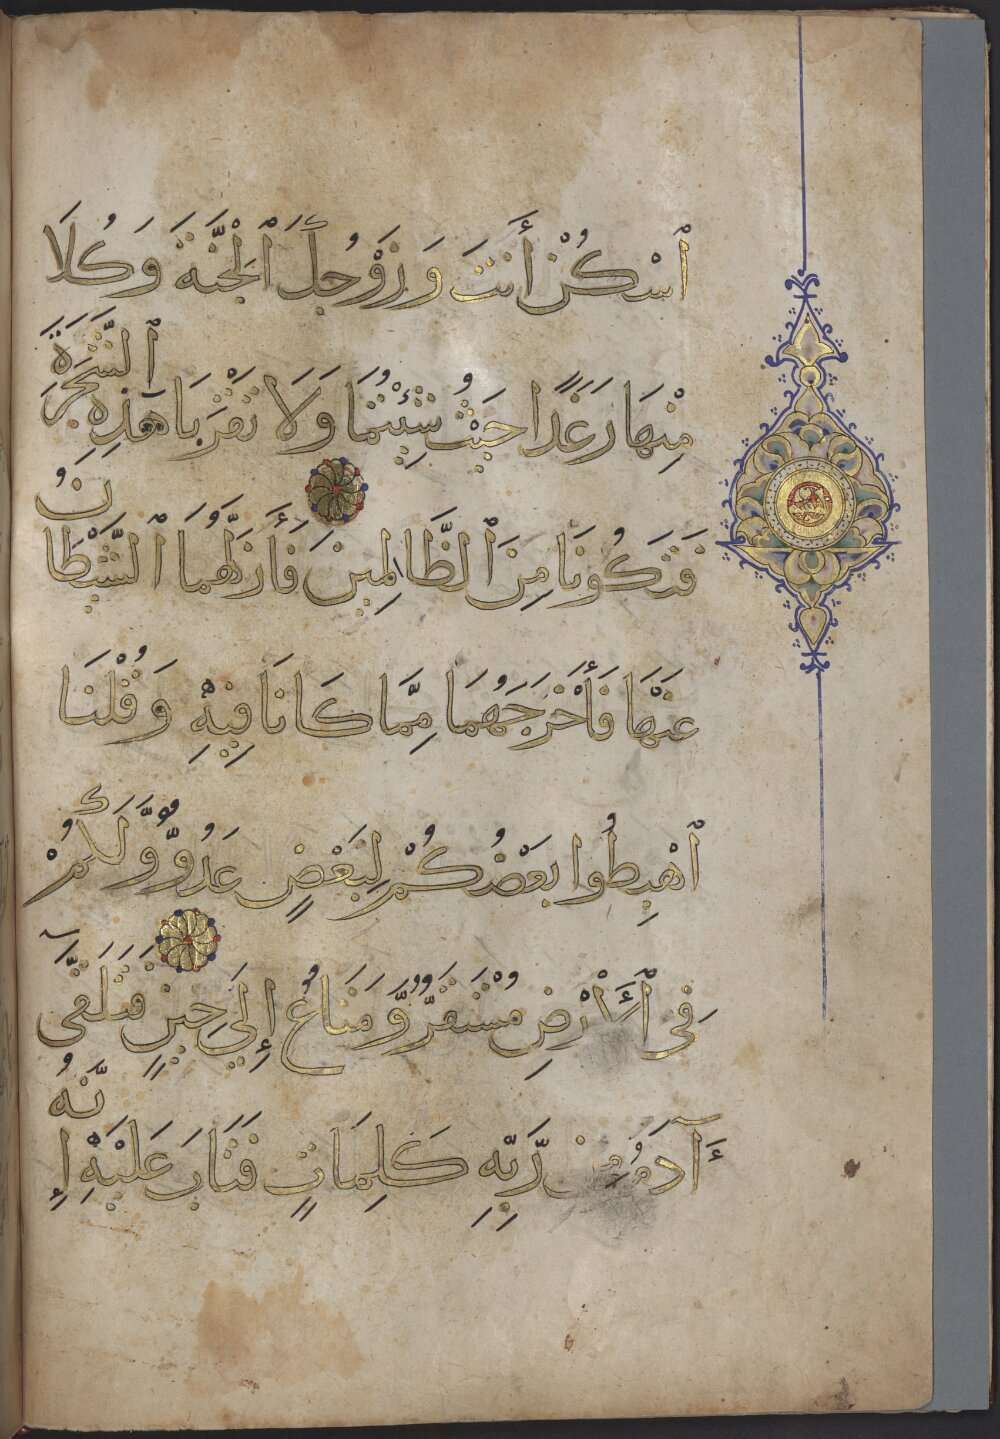 ٱسْكُنْ أَنتَ وَزَوْجُكَ ٱلْجَنَّةَ وَكُلَا
مِنْهَا رَغَدًا حَيْثُ شِئْتُمَا وَلَا تَقْرَبَا هَٰذِهِ ٱلشَّجَرَةَ
فَتَكُونَا مِنَ ٱلظَّالِمِينَ فَأَزَلَّهُمَا ٱلشَّيْطَانُ
عَنْهَا فَأَخْرَجَهُمَا مِمَّا كَانَا فِيهِ وَقُلْنَا
ٱهْبِطُوا بَعْضُكُمْ لِبَعْضٍ عَدُوٌّ وَّلَكُمْ
فِي ٱلْأَرْضِ مُسْتَقَرٌّ وَّمَتَاعٌ إِلَى حِينٍ فَتَلَقَّىٰٓ
ءَادَمُ مِن رَّبِّهِ كَلِمَاتٍ فَتَابَ عَلَيْهِ إِنَّهُ